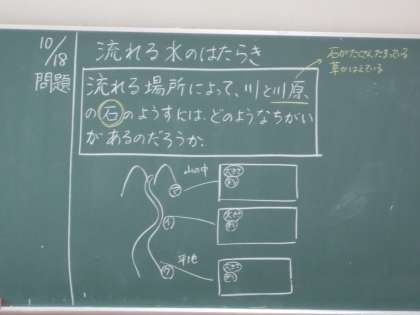 10/18
問題
流れる水のはたらき
石がたくさんたまっている
草がはえている
流れる場所によって、川と川原
の石のようすには、どのようなちがい
があるのだろうか。
山の中
㋐
㋑
平地
㋒